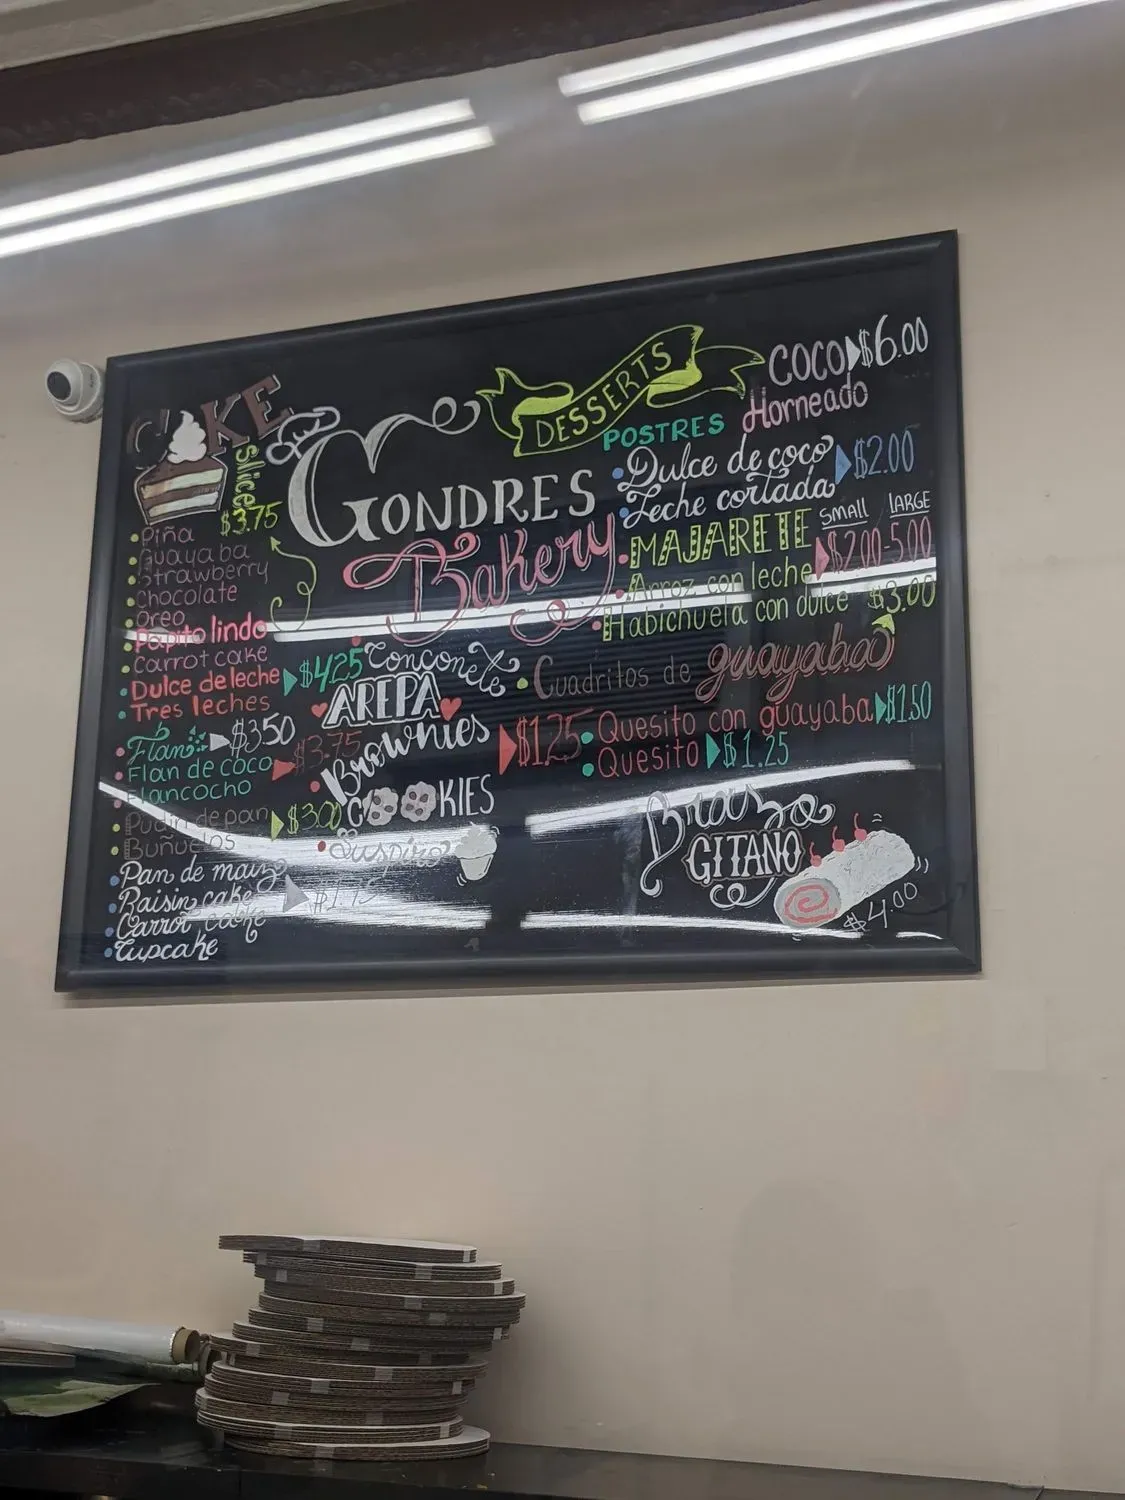 CAKE
Slice
$3.75
Piña
Guayaba
Strawberry
chocolate
Oreo
Papito lindo
Carrot cake
Dulce de leche $4.25
Tres leches
Flan $3.50
Flan de coco $3.75
Flancocho
Pudin de pan $3.00
Buñuelos
Pan de maiz
Raisin cake $1.75
Carrot cake
Cupcake
GONDRES
Bakery
Conconete
AREPA
Brownies $1.25
COOKIES
Suspiro
DESSERTS
POSTRES
COCO $6.00
Horneado
Dulce de coco $2.00
Leche cortada
SMALL LARGE
MAJARETE $2.00-5.00
Arroz con leche
Habichuela con dulce $3.00
Cuadritos de guayaba
Quesito con guayaba $1.50
Quesito $1.25
Brazo
GITANO
$4.00